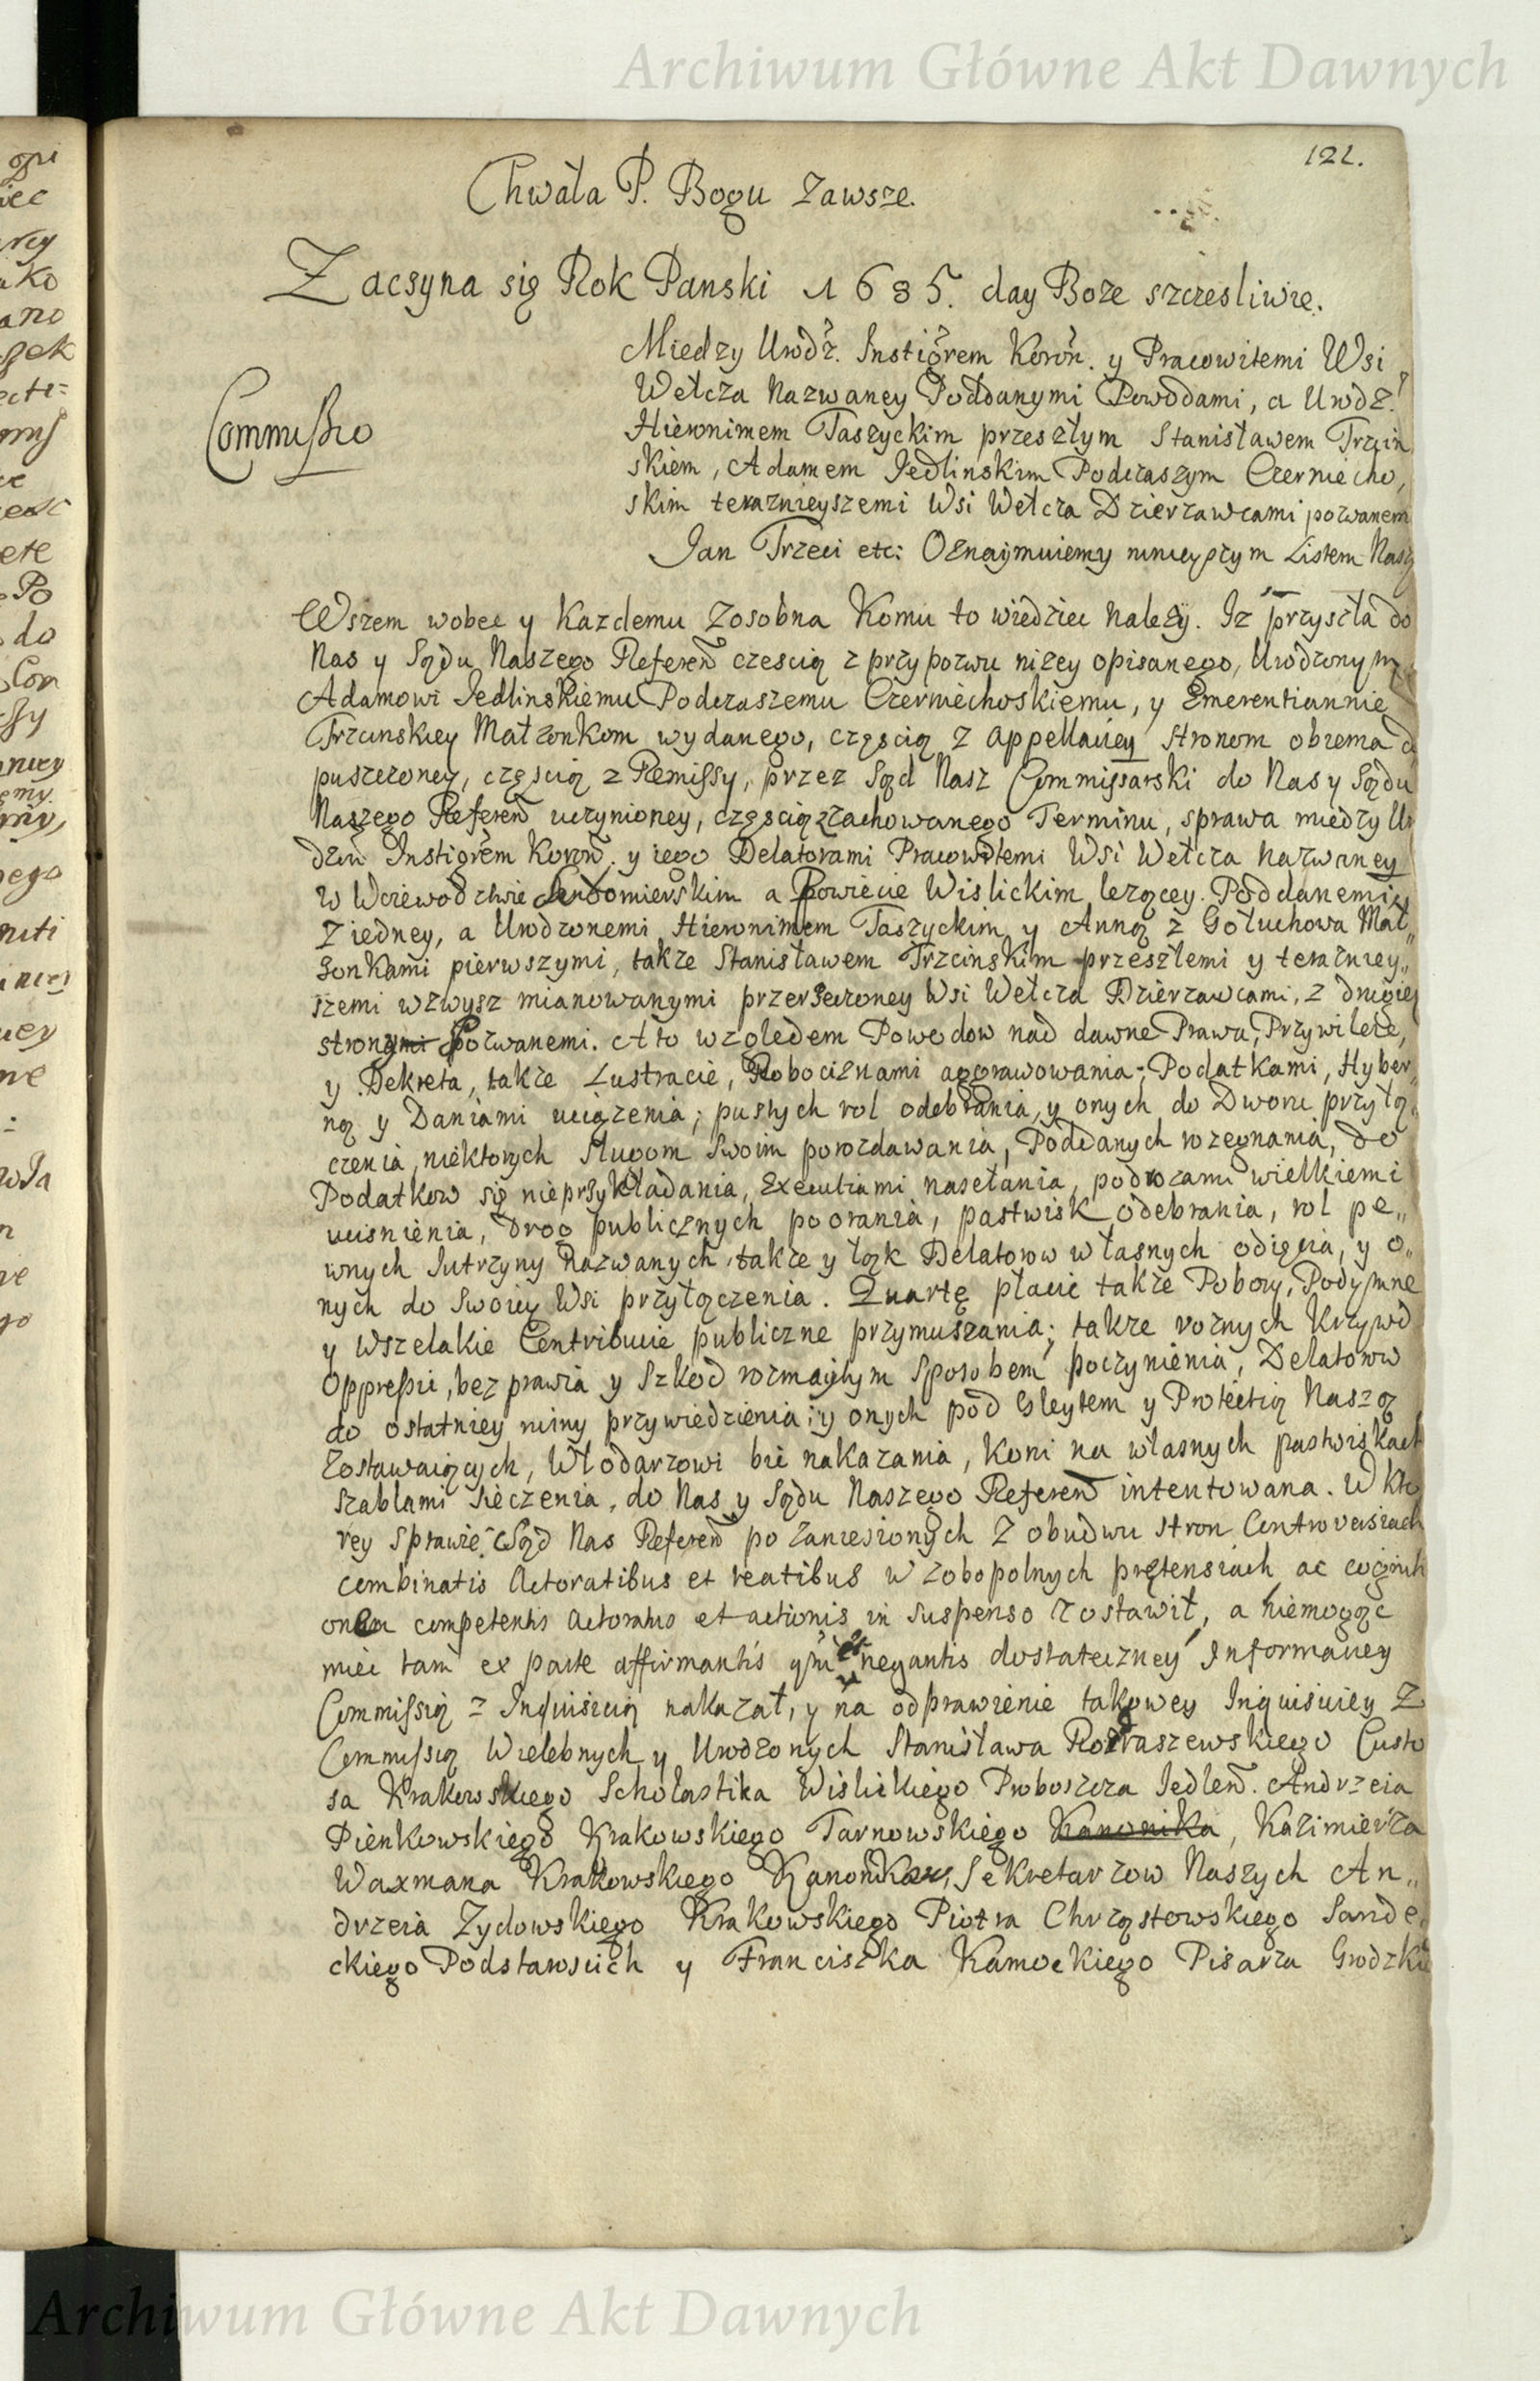 Archiwum Główne Akt Dawnych
121.
Chwała P. Bogu Zawsze.
Zacsyna się Rok Panski 1685. day Boze szczesliwie.
Miedzy Urodz. Instigrem Koron. y Pracowitemi Wsi
Wełcza Nazwaney Poddanymi Powodami, a Urodz.
Commissio
Hieronimem Taszyckim przeszłym Stanisławem Trzcin
skiem, Adamem Jedlinskim Podczaszym Czerniecho,
skim teraznieyszemi Wsi Wełcza Dzierzawcami pozwanem
Jan Trzeci etc: Oznaymuiemy ninieyszym Listem Nasz
Wszem wobec y Kazdemu Zosobna Komu to wiedziec Nalezy. Iz przyszła do
Nas y Sądu Naszego Referen czescią z przypozwu nizey opisanego, Urodzonym
Adamowi Jedlinskiemu Podczaszemu Czerniechoskiemu, y Emerentiannie
Trzcinskiey Małzonkom wydanego, częscią z Appellaciey stronom obiema d
puszczoney, częscią z Remissy, przez Sąd Nasz Commissarski do Nas y Sądu
Naszego Referen uczynioney, częscią zachowanego Terminu, sprawa miedzy Ur
dzon Instigrem Koron. y iego Delatorami Pracowitemi Wsi Wełcza nazwaney
w Woiewodztwie Sendomierskim a Powiecie Wislickim lezącey Poddanemi
Z iedney, a Urodzonemi Hieronimem Taszyckim y Anną z Gołuchowa Mał„
zonkami pierwszymi, takze Stanisławem Trzcinskim przeszłemi y terazniey„
szemi wzwysz mianowanymi przerzeczoney Wsi Wełcza Dzierzawcami, z drugiey
strony Pozwanemi. A to względem Powodow nad dawne Prawa, Przywileie,
y Dekreta, takze Lustracie, Robociznami aggrawowania; Podatkami, Hyber„
ną y Daniami uciązenia; pustych rol odebrania, y onych do Dworu przyłą„
czenia, niektorych Sługom Swoim porozdawania, Poddanych rozegnania, do
Podatkow się nieprzykładania, Executiami nasełania, podrozami wielkiemi
ucisnienia, drog publicznych poorania, pastwisk odebrania, rol pe„
wnych Jutrzyny Nazwanych takze y łąk Delatorow własnych odięcia, y o„
nych do Swoiey Wsi przyłączenia. Quartę płacic takze Pobory, Podymne
y Wszelakie Contribucie publiczne przymuszania; takze roznych Krzywd
Oppressii, bezprawia y Szkod rozmaitym sposobem poczynienia, Delatorow
do ostatniey ruiny przywiedzienia; y onych pod Gleytem y Protectią Naszą
Zostawaiących, Włodarzowi bic nakazania, Koni na własnych pastwiskach
szablami sieczenia, do Nas y Sądu Naszego Referen intentowana. W Kto
rey Sprawie Sąd Nas Referen po zaniesionych Z obudwu stron Controversiach
combinatis Actoratibus et reatibus w zobopolnych prętensiach, ac cogniti
onem competentis Actoratus et actionis in Suspenso Zostawił, a niemogąc
miec tam ex parte affirmantis qm negantis dostateczney Informaciey
Commissią z Inquisicią nakazał, y na odprawienie takowey Inquisiciey Z
Commissią Wielebnych y Urodzonych Stanisława Rozraszewskiego Custo
sa Krakowskiego Scholastika Wislickiego Proboszcza Jedlen. Andrzeia
Pienkowskiego Krakowskiego Tarnowskiego Kanonika, Kazimierza
Waxmana Krakowskiego Kanonikow, Sekretarzow Naszych An„
drzeia Zydowskiego Krakowskiego Piotra Chrząstowskiego Sande,
ckiego Podstarosicich y Franciszka Kamockiego Pisarza Grodzkie
Archiwum Główne Akt Dawnych